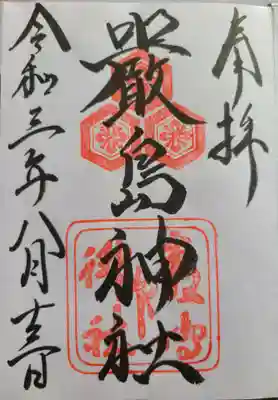 奉拝
嚴島神社
令和三年八月十三日